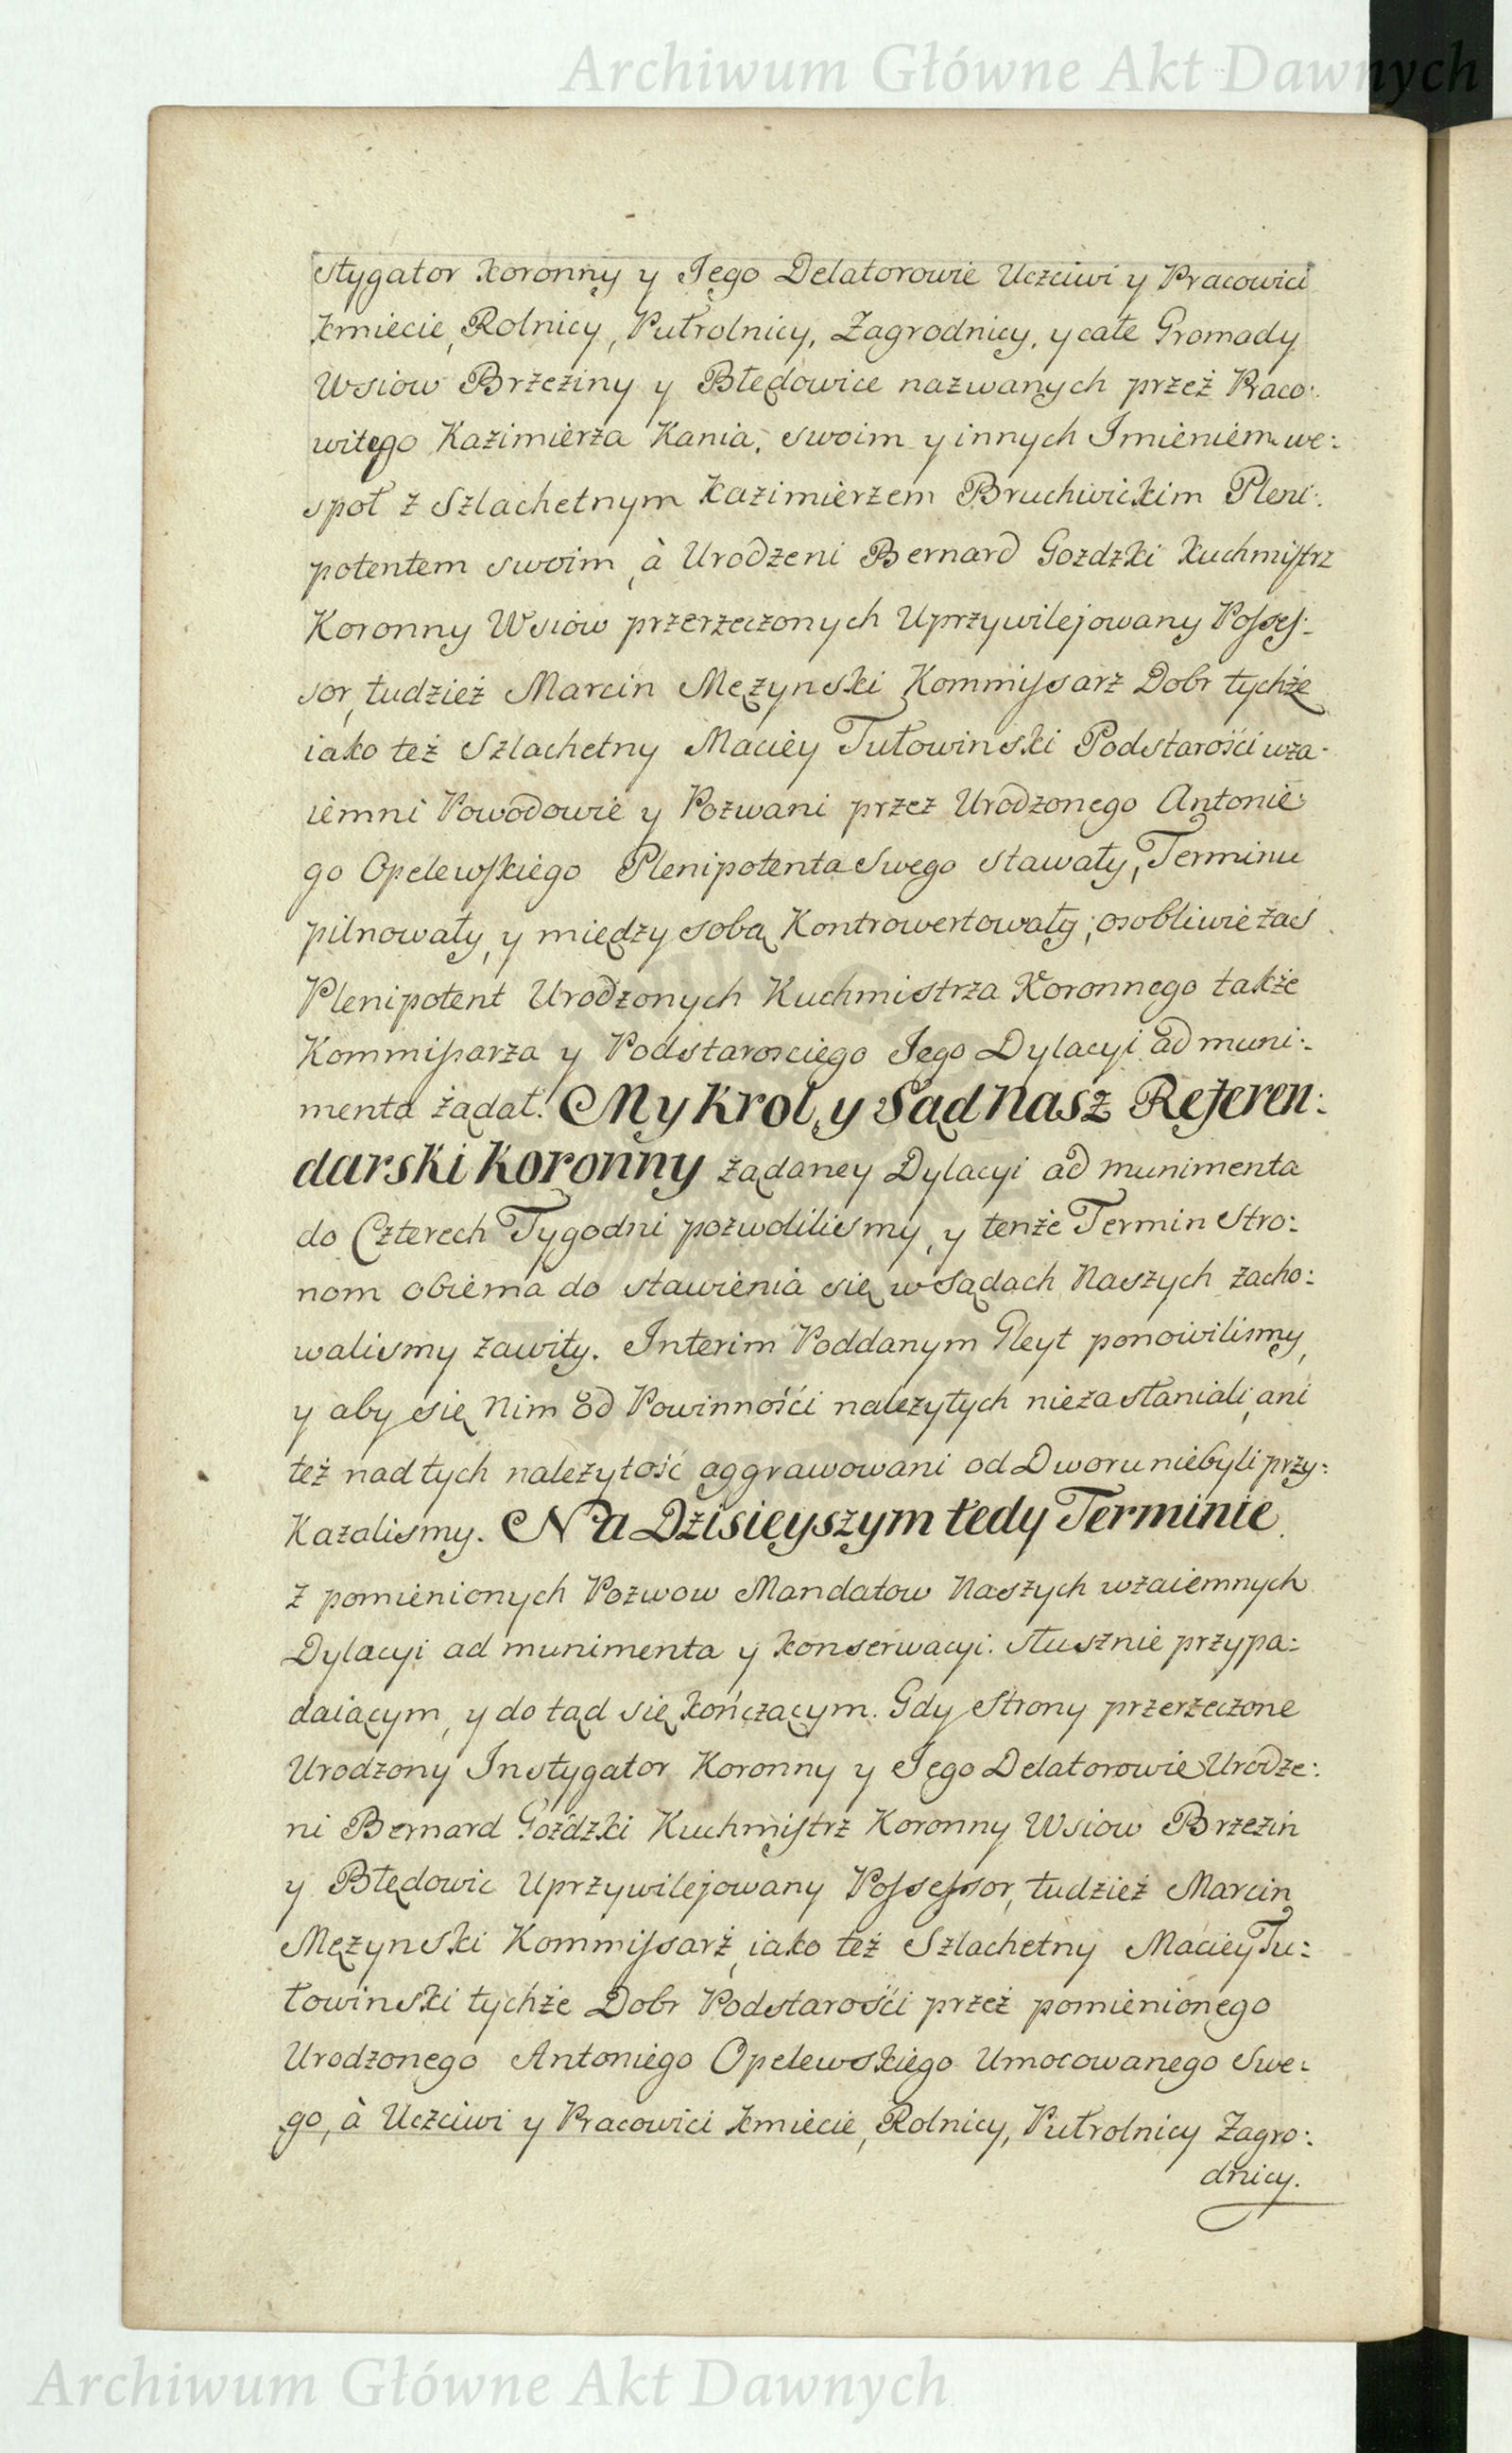 Archiwum Główne Akt Dawnych
stygator Koronny y Jego Delatorowie Uczciwi y Pracowici
Kmiecie, Rolnicy, Pułrolnicy, Zagrodnicy, y całe Gromady
Wsiow Brzeziny y Błędowice nazwanych przez Praco:
witego Kazimierza Kania, swoim y innych Imieniem we:
społ z Szlachetnym Kazimierzem Bruchwickim Pleni:
potentem swoim, à Urodzeni Bernard Gozdzki Kuchmistrz
Koronny Wsiow przerzeczonych Uprzywilejowany Posses:
sor, tudzież Marcin Męzynski Kommissarz Dobr tychże
iako też Szlachetny Maciey Tułowinski Podstarości wza:
iemni Powodowie y Pozwani przez Urodzonego Antonie:
go Opelewskiego Plenipotenta Swego stawały, Terminu
pilnowały, y między sobą Kontrowertowały; osobliwie zaś
Plenipotent Urodzonych Kuchmistrza Koronnego także
Kommissarza y Podstarosciego Jego Dylacyi ad muni:
menta żądał. My Krol, y Sąd Nasz Referen:
darski Koronny żądaney Dylacyi ad munimenta
do Czterech Tygodni pozwolilismy, y tenże Termin Stro:
nom obiema do stawienia się w Sądach Naszych zacho:
walismy zawity. Interim Poddanym Gleyt ponowilismy,
y aby się Nim od Powinności nalezytych niezasłaniali, ani
też nad tych należytość aggrawowani od Dworu niebyli przy:
kazalismy. Na Dzisieyszym tedy Terminie
z pomienionych Pozwow Mandatow Naszych wzaiemnych
Dylacyi ad munimenta y konserwacyi. słusznie przypa:
daiącym, y do tąd się kończącym. Gdy Strony przerzeczone
Urodzony Instygator Koronny y Jego Delatorowie Urodze:
ni Bernard Goździki Kuchmistrz Koronny Wsiow Brzezin
y Błędowic Uprzywilejowany Possessor, tudzież Marcin
Męzynski Kommissarz, iako też Szlachetny Maciey Tu:
łowinski tychże Dobr Podstarości przez pomienionego
Urodzonego Antoniego Opelewskiego Umocowanego Swe:
go, à Uczciwi y Pracowici Kmiecie, Rolnicy, Pułrolnicy Zagro:
dnicy.
Archiwum Główne Akt Dawnych